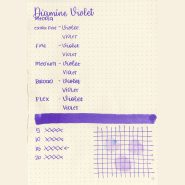 Diamine Violet
Extra Fine - Violet
Violet
Fine - Violet
Violet
Medium - Violet
Violet
Broad - Violet
Violet
Flex - Violet
Violet
5 XXXX
10 XXXX
15 XXXX
20 XXXX